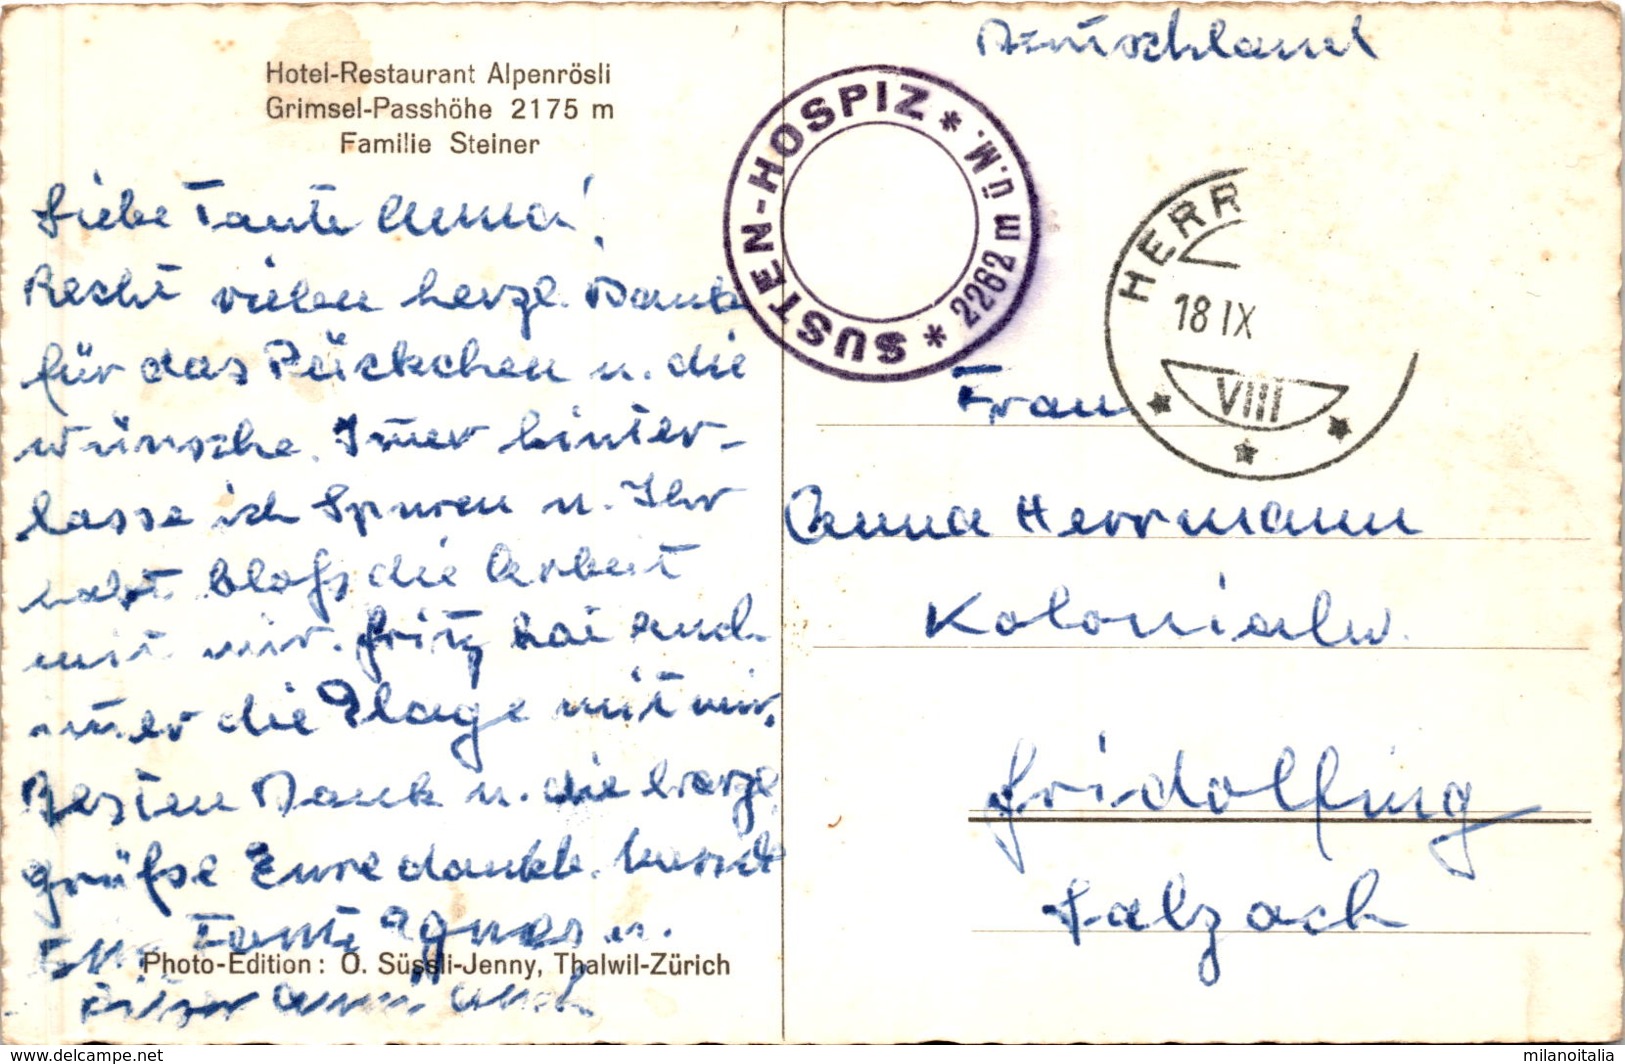 Hotel-Restaurant Alpenrösli
Grimsel-Passhöhe 2175 m
Familie Steiner
Liebe Tante Anna!
Recht vielen herzl. Dank
für das Päckchen u. die
Wünsche. Immer hinter-
lasse ich Spuren u. Ihr
habt bloß die Arbeit
mit mir. Fritz hat auch
immer die Plage mit mir.
Besten Dank u. die herzl.
Grüße Eure dankb.
Tante Agnes u.
Photo-Edition: O. Süssli-Jenny, Thalwil-Zürich
SUSTEN-HOSPIZ * 2262 m ü.M. *
Deutschland
HERR
18 IX
VIII
Frau
Anna Herrmann
Kolonialw.
Fridolfing
Salzach
delcampe.net
milanoitalia